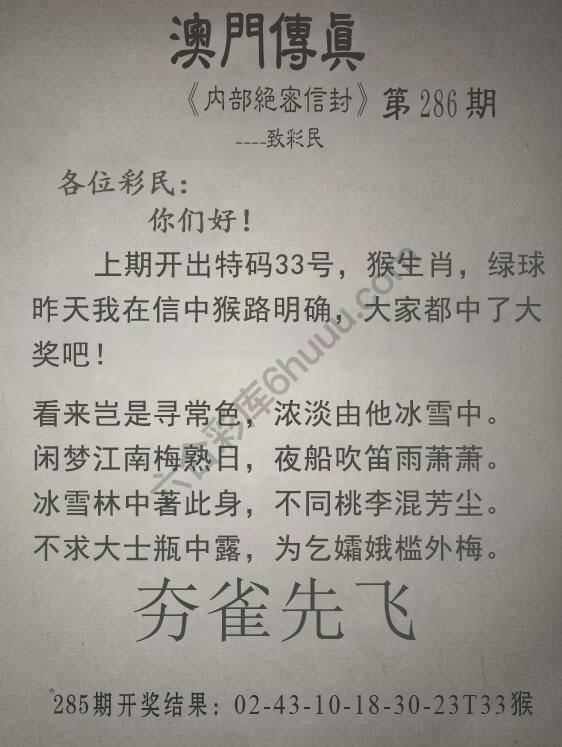 澳門傳真
《内部絕密信封》第286期
----致彩民
各位彩民：
你们好！
上期开出特码33号，猴生肖，绿球
昨天我在信中猴路明确，大家都中了大
奖吧！
看来岂是寻常色，浓淡由他冰雪中。
闲梦江南梅熟日，夜船吹笛雨萧萧。
冰雪林中著此身，不同桃李混芳尘。
不求大士瓶中露，为乞孀娥槛外梅。
夯雀先飞
285期开奖结果：02-43-10-18-30-23T33猴
六合彩库6huuu.com